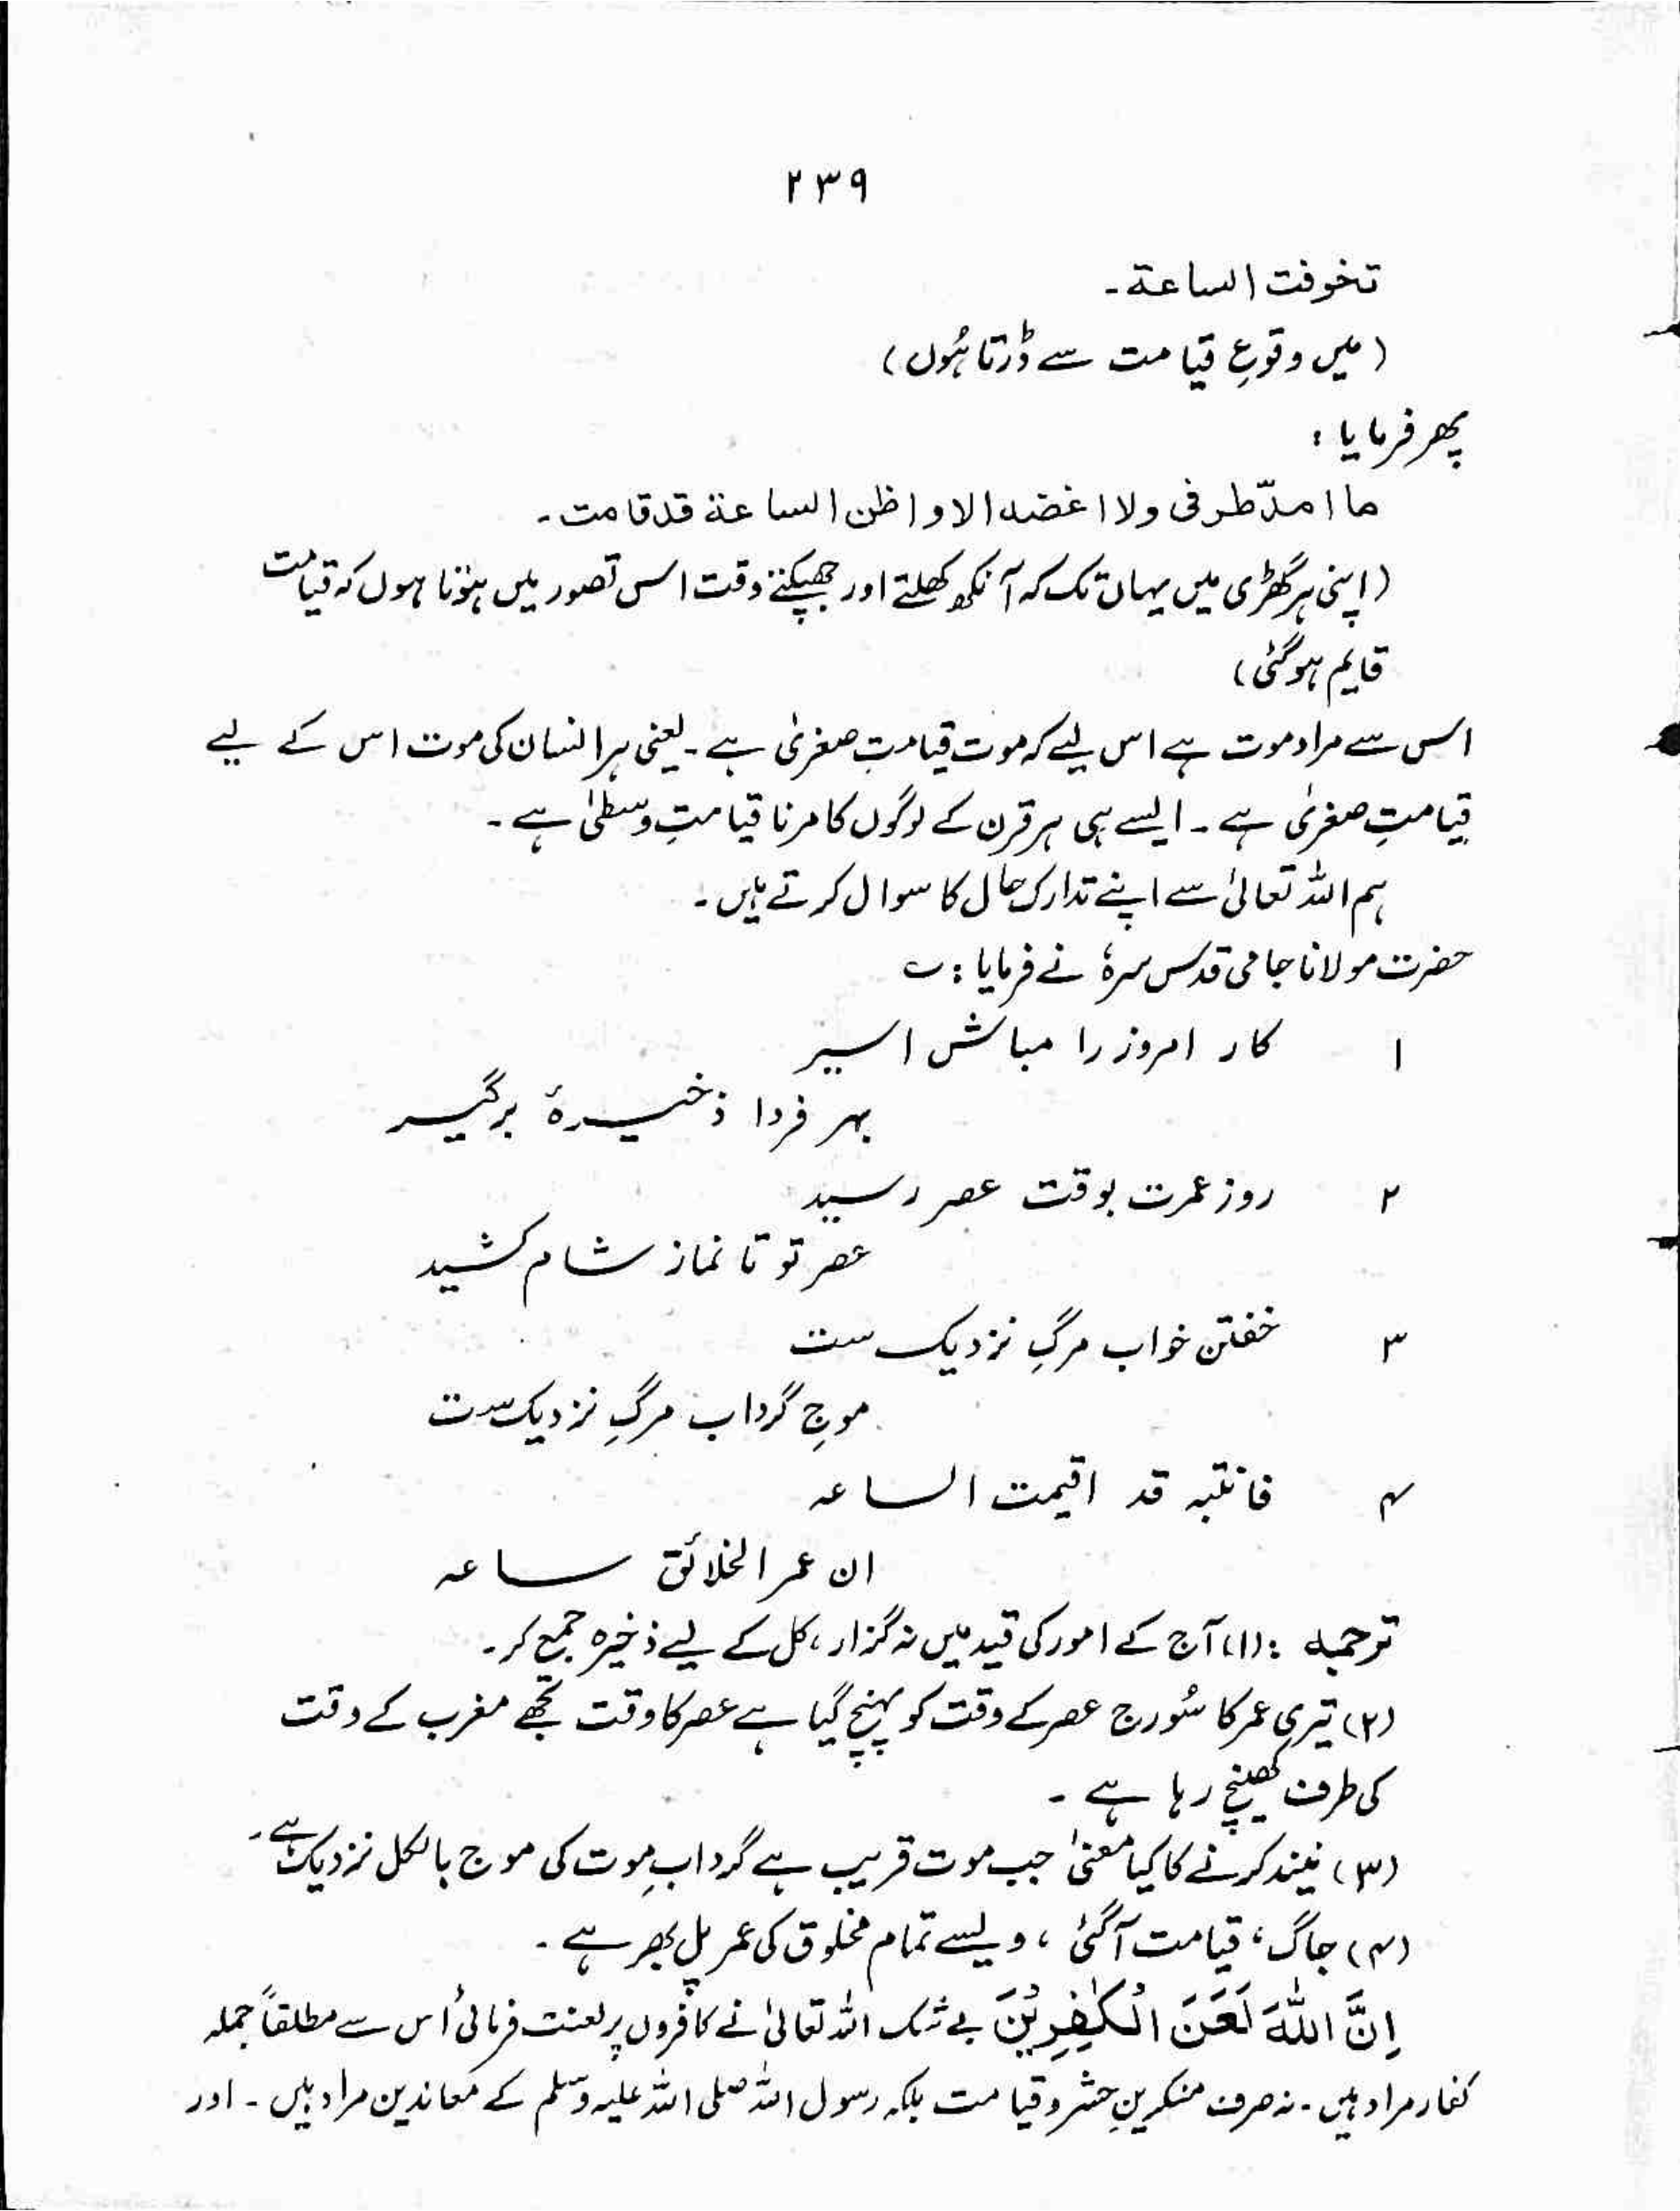 ۲۳۹
تخوفت الساعة۔
(میں وقوعِ قیامت سے ڈرتا ہُوں)
پھر فرمایا :
ما امدّ طرفی ولا اغضہ الا واظن الساعة قد قامت۔
(اپنی ہر گھڑی میں یہاں تک کہ آنکھ کھلتے اور جھپکتے وقت اس تصور میں ہوتا ہوں کہ قیامت
قایم ہوگئی)
اس سے مراد موت ہے اس لیے کہ موت قیامتِ صغریٰ ہے۔ یعنی ہر انسان کی موت اس کے لیے
قیامتِ صغریٰ ہے۔ ایسے ہی ہر قرن کے لوگوں کا مرنا قیامتِ وسطیٰ ہے۔
ہم اللہ تعالیٰ سے اپنے تدارک حال کا سوال کرتے ہیں۔
حضرت مولانا جامی قدس سرہٗ نے فرمایا : ؎
۱ کار امروز را مباش اسیر
بہر فردا ذخیرۂ برگیر
۲ روز عمرت بوقت عصر رسید
عصر تو تا نماز شام کشید
۳ خفتن خواب مرگِ نزدیک ست
موجِ گرداب مرگِ نزدیک ست
۴ فانتبہ قد اقیمت الساعہ
ان عمر الخلائق ساعہ
ترجمہ : (۱) آج کے امور کی قید میں نہ گزار، کل کے لیے ذخیرہ جمع کر۔
(۲) تیری عمر کا سُورج عصر کے وقت کو پہنچ گیا ہے عصر کا وقت تجھے مغرب کے وقت
کی طرف کھینچ رہا ہے۔
(۳) نیند کرنے کا کیا معنیٰ جب موت قریب ہے گردابِ موت کی موج بالکل نزدیک ہے۔
(۴) جاگ، قیامت آگئی، ویسے تمام مخلوق کی عمر پل بھر ہے۔
اِنَّ اللّٰهَ لَعَنَ الْکٰفِرِیْنَ بے شک اللہ تعالیٰ نے کافروں پر لعنت فرمائی اُس سے مطلقاً جملہ
کفار مراد ہیں۔ نہ صرف منکرینِ حشر و قیامت بلکہ رسول اللہ صلی اللہ علیہ وسلم کے معاندین مراد ہیں۔ اور